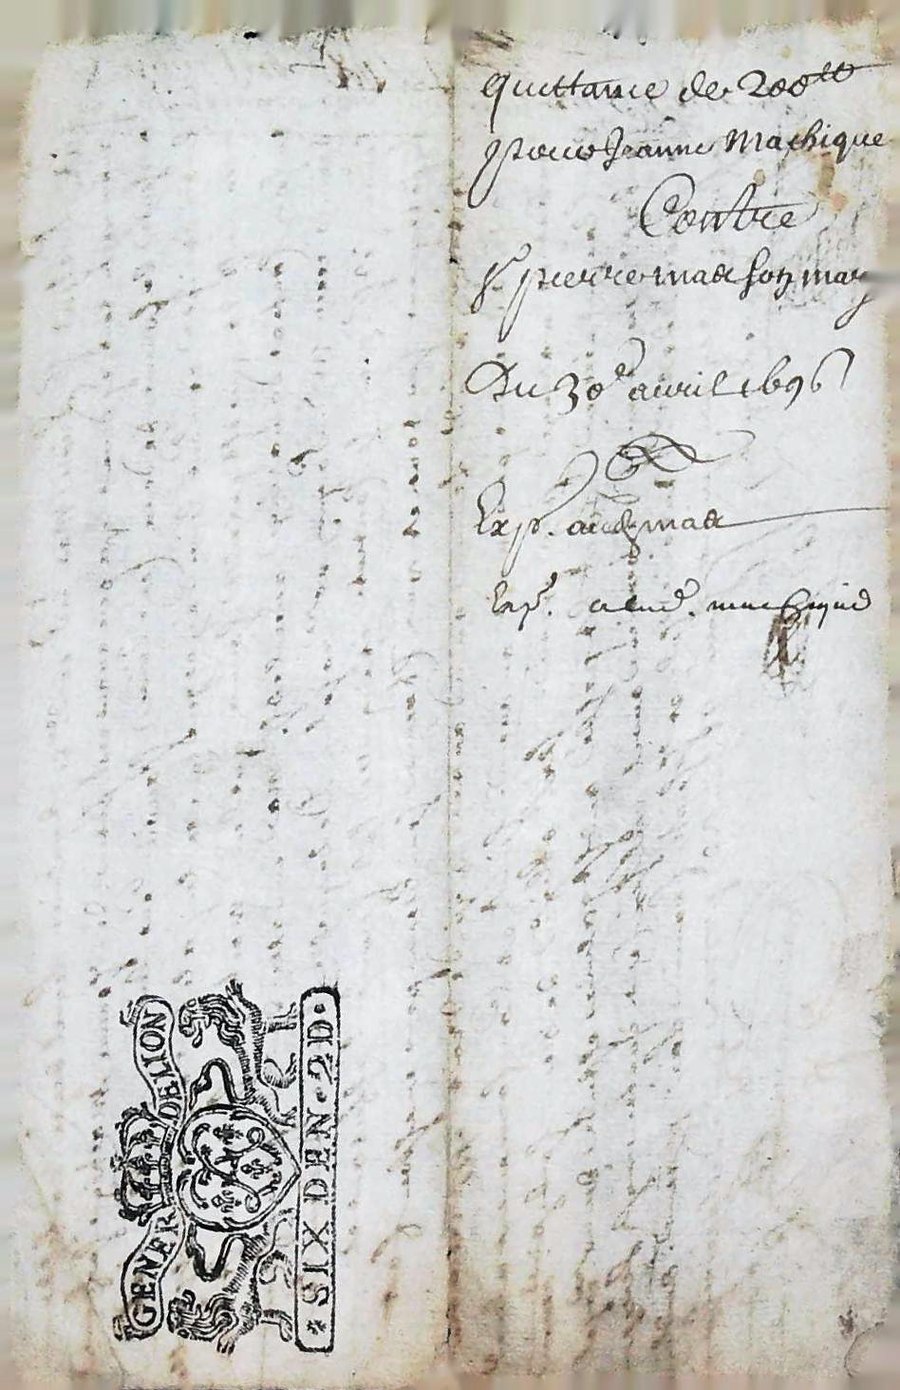 quittance de 200tt
pour Jeanne Machique
Contre
Sr pierre mas son mary
Du 30e avril 1696
Exp. aud. mas
Exp. a lad.
GENER DE LION
SIX DEN. 2D.